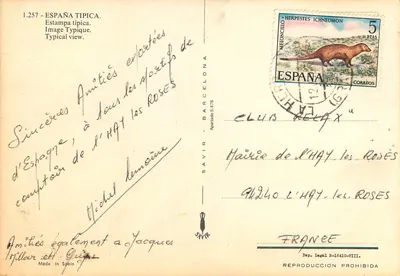 1.257 - ESPAÑA TIPICA.
Estampa típica.
Image Typique.
Typical view.
Sincères Amitiés exportées
d'Espagne, à tous les sportifs de
comptoir de l'HAY les ROSES
Michel Lemoine
Amitiés également a Jacques
Millar et
Made in Spain
SAVIR - BARCELONA
SAVIR
MELONCILLO - HERPESTES ICHNEUMON
5
PTAS
ESPAÑA
CORREOS
CLUB RELAX
Mairie de l'HAY les ROSES
94240 L'HAY les ROSES
FRANCE
REPRODUCCION PROHIBIDA